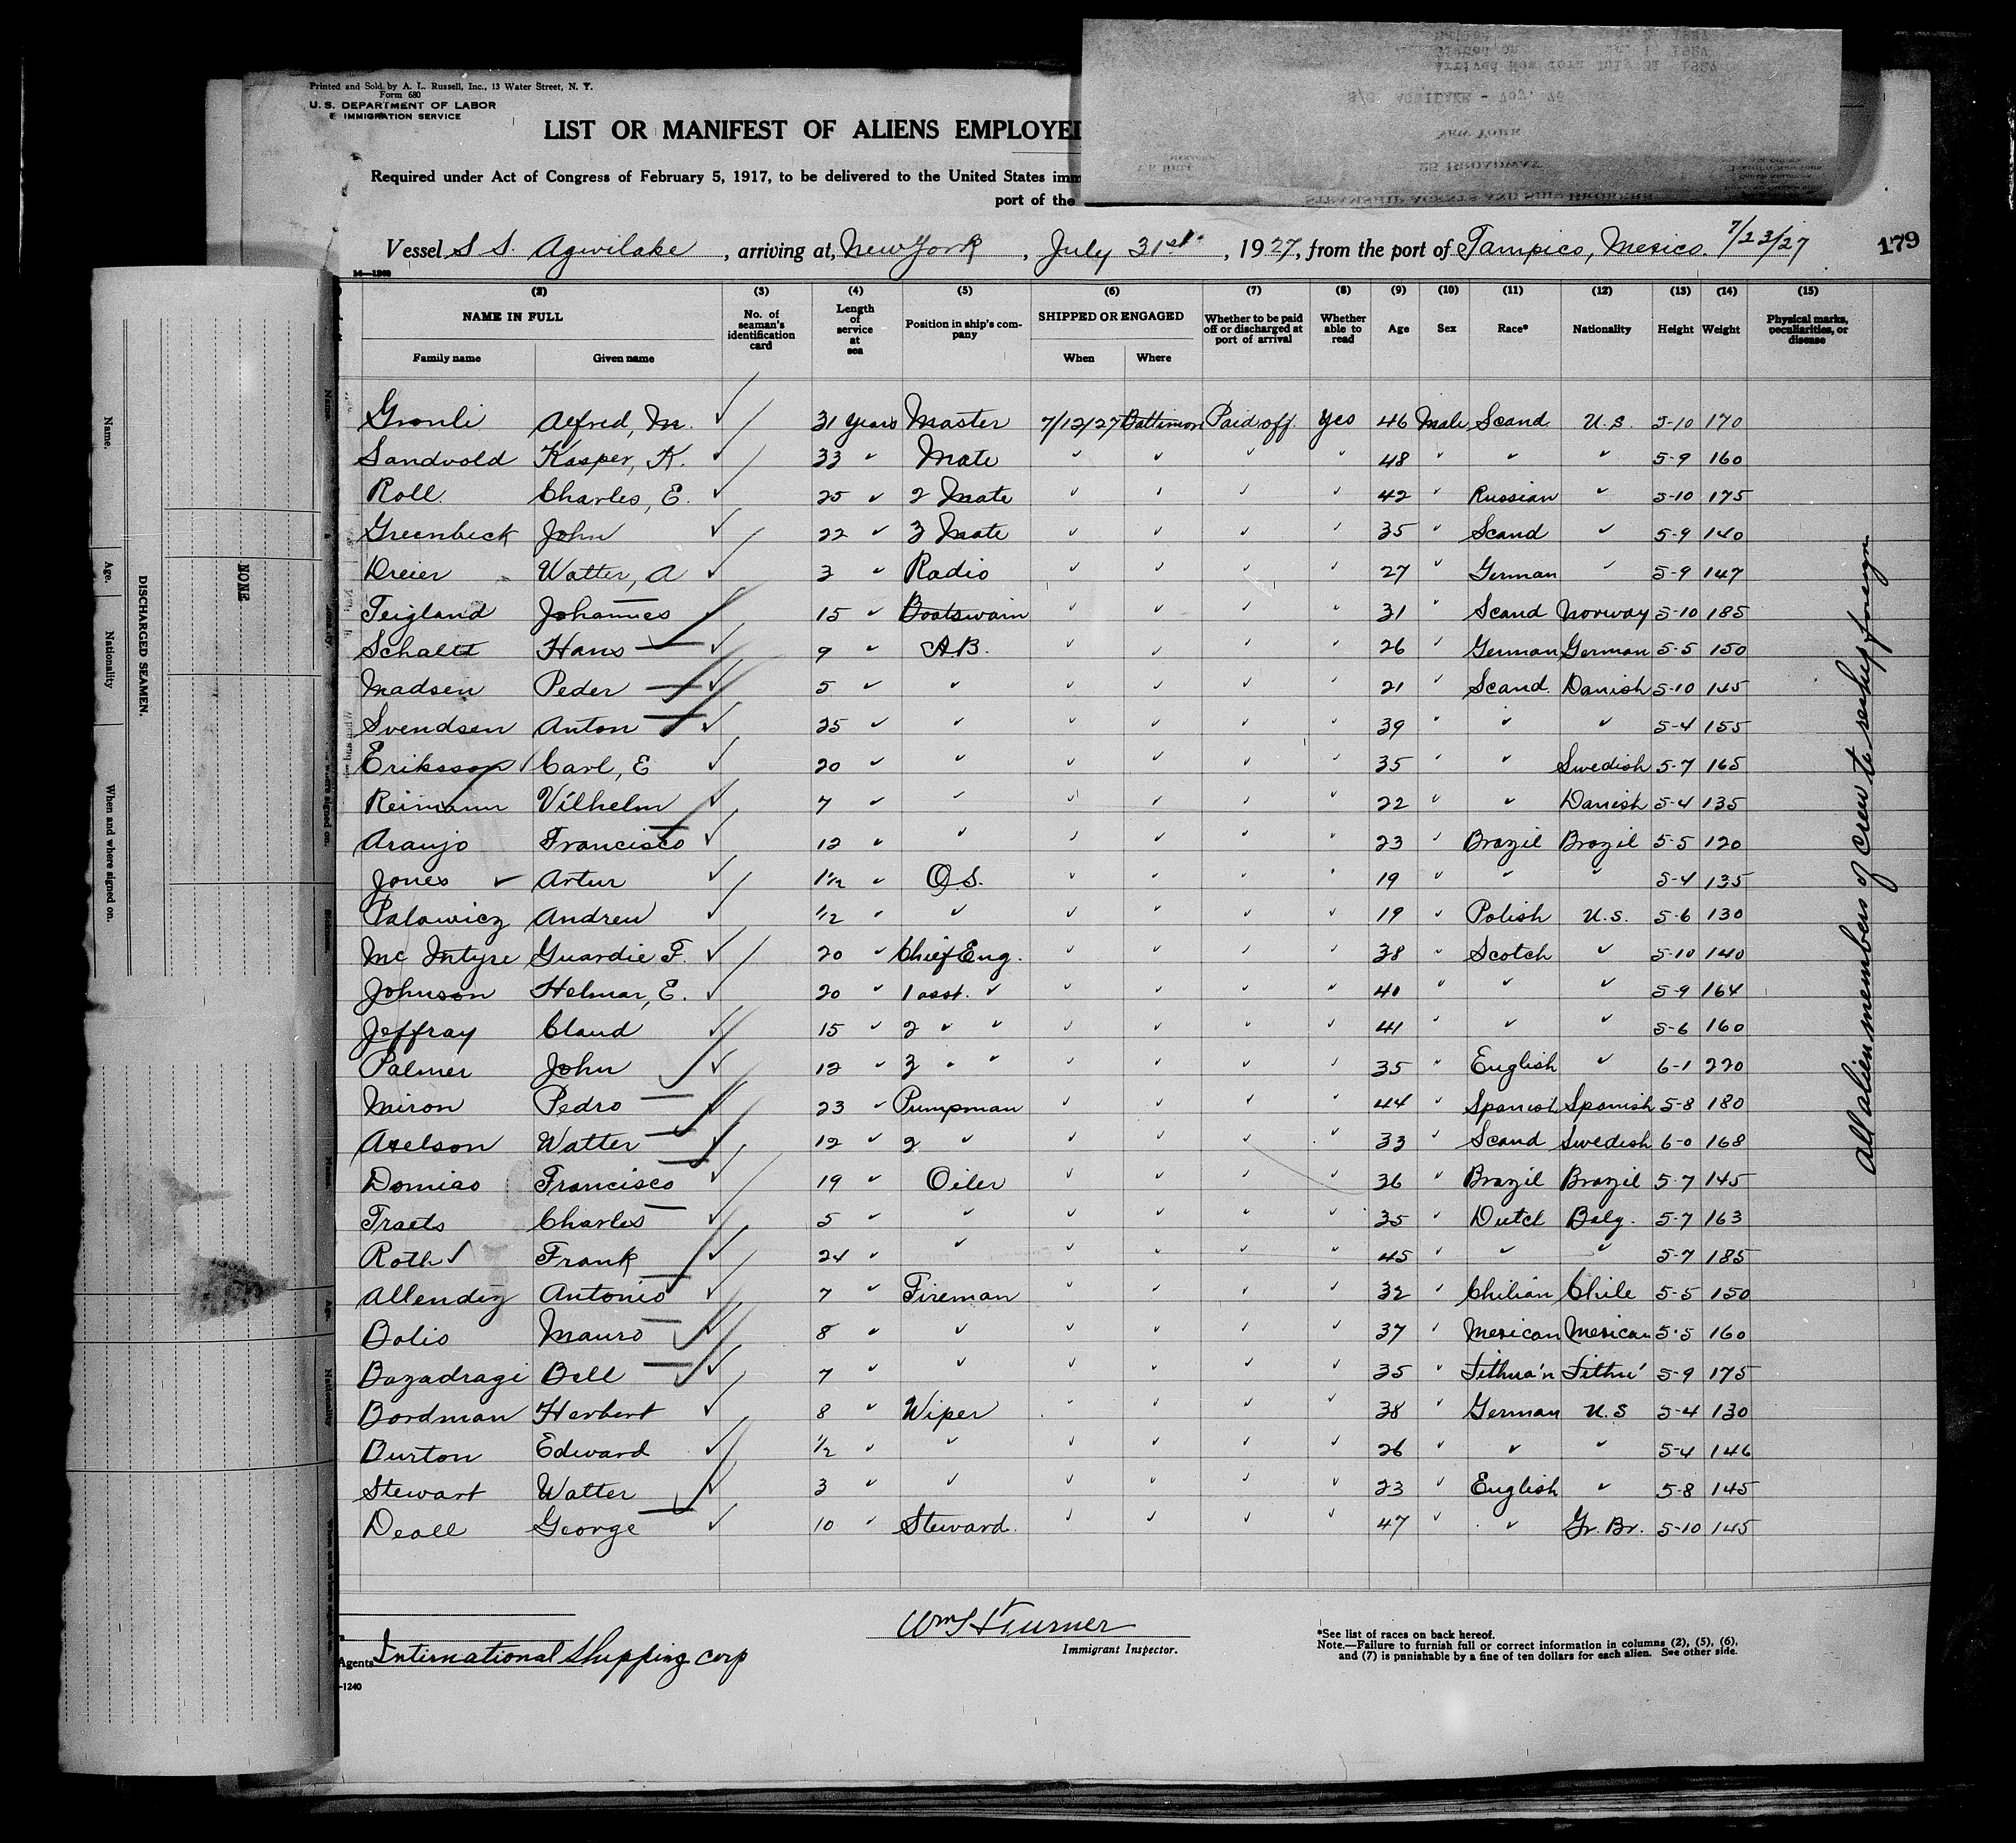 Printed and Sold by A. L. Russell, Inc., 13 Water Street, N. Y.
Form 680
U. S. DEPARTMENT OF LABOR
IMMIGRATION SERVICE
LIST OR MANIFEST OF ALIENS EMPLOYE
Required under Act of Congress of February 5, 1917, to be delivered to the United States imm
port of the
Vessel S S. Agwilake, arriving at, New York, July 31st, 1927, from the port of Tampico, Mexico. 7/23/27
179
14—1240
(2) (3) (4) (5) (6) (7) (8) (9) (10) (11) (12) (13) (14) (15)
NAME IN FULL No. of seaman's identification card Length of service at sea Position in ship's company SHIPPED OR ENGAGED Whether to be paid off or discharged at port of arrival Whether able to read Age Sex Race* Nationality Height Weight Physical marks, peculiarities, or disease
Family name Given name When Where
Gronli Alfred, M. ✓ 31 years Master 7/12/27 Baltimore Paid off. Yes 46 Male Scand. U.S. 5-10 170
Sandvold Kasper, K. ✓ 33 ✓ Mate ✓ ✓ ✓ ✓ 48 ✓ ✓ ✓ 5-9 160
Roll Charles, E. ✓ 25 ✓ 2 Mate ✓ ✓ ✓ ✓ 42 ✓ Russian ✓ 5-10 175
Greenbeck John ✓ 22 ✓ 3 Mate ✓ ✓ ✓ ✓ 35 ✓ Scand ✓ 5-9 140
Dreier Walter, A ✓ 3 ✓ Radio ✓ ✓ ✓ ✓ 27 ✓ German ✓ 5-9 147
Teigland Johannes ✓ 15 ✓ Boatswain ✓ ✓ ✓ ✓ 31 ✓ Scand Norway 5-10 185
Schaltt Hans ✓ 9 ✓ AB. ✓ ✓ ✓ ✓ 26 ✓ German German 5-5 150
Madsen Peder ✓ 5 ✓ ✓ ✓ ✓ ✓ ✓ 21 ✓ Scand. Danish 5-10 145
Svendsen Anton ✓ 25 ✓ ✓ ✓ ✓ ✓ ✓ 39 ✓ ✓ ✓ 5-4 155
Eriksson ✓ Carl, E ✓ 20 ✓ ✓ ✓ ✓ ✓ ✓ 35 ✓ ✓ Swedish 5-7 165
Reimann Vilhelm ✓ 7 ✓ ✓ ✓ ✓ ✓ ✓ 22 ✓ ✓ Danish 5-4 135
Araujo Francisco ✓ 12 ✓ ✓ ✓ ✓ ✓ ✓ 23 ✓ Brazil Brazil 5-5 120
Jones ✓ Artur ✓ 1½ ✓ O.S. ✓ ✓ ✓ ✓ 19 ✓ ✓ ✓ 5-4 135
Palowicz Andrew ✓ ½ ✓ ✓ ✓ ✓ ✓ ✓ 19 ✓ Polish U.S. 5-6 130
Mc Intyre Guardie F. ✓ 20 ✓ Chief Eng. ✓ ✓ ✓ ✓ 38 ✓ Scotch ✓ 5-10 140
Johnson Helmar, E. ✓ 20 ✓ 1 asst. ✓ ✓ ✓ ✓ ✓ 40 ✓ ✓ ✓ 5-9 164
Jeffray Claud ✓ 15 ✓ 2 ✓ ✓ ✓ ✓ ✓ ✓ 41 ✓ ✓ ✓ 5-6 160
Palmer John ✓ 12 ✓ 3 ✓ ✓ ✓ ✓ ✓ ✓ 35 ✓ English ✓ 6-1 220
Miron Pedro ✓ 23 ✓ Pumpman ✓ ✓ ✓ ✓ 44 ✓ Spanish Spanish 5-8 180
Axelson Walter ✓ 12 ✓ 2 ✓ ✓ ✓ ✓ ✓ 33 ✓ Scand Swedish 6-0 168
Domiao Francisco ✓ 19 ✓ Oiler ✓ ✓ ✓ ✓ 36 ✓ Brazil Brazil 5-7 145
Traets Charles ✓ 5 ✓ ✓ ✓ ✓ ✓ ✓ 35 ✓ Dutch Belg. 5-7 163
Roth ✓ Frank ✓ 24 ✓ ✓ ✓ ✓ ✓ ✓ 45 ✓ ✓ ✓ 5-7 185
Allendez Antonio ✓ 7 ✓ Fireman ✓ ✓ ✓ ✓ 32 ✓ Chilian Chile 5-5 150
Bolio Mauro ✓ 8 ✓ ✓ ✓ ✓ ✓ ✓ 37 ✓ Mexican Mexican 5-5 160
Bazadragi Bell ✓ 7 ✓ ✓ ✓ ✓ ✓ ✓ 35 ✓ Lithua'n Lithu' 5-9 175
Bordman Herbert ✓ 8 ✓ Wiper ✓ ✓ ✓ ✓ 38 ✓ German U.S 5-4 130
Burton Edward ✓ ½ ✓ ✓ ✓ ✓ ✓ ✓ 26 ✓ ✓ ✓ 5-4 146
Stewart Walter ✓ 3 ✓ ✓ ✓ ✓ ✓ ✓ 23 ✓ English ✓ 5-8 145
Deall George ✓ 10 ✓ Steward. ✓ ✓ ✓ ✓ 47 ✓ ✓ Gr. Br. 5-10 145
All alien members of crew to reship foreign
Wm S Turner
Immigrant Inspector.
Agents International Shipping corp
-1240
*See list of races on back hereof.
Note.—Failure to furnish full or correct information in columns (2), (5), (6),
and (7) is punishable by a fine of ten dollars for each alien. See other side.
DISCHARGED SEAMEN.
Name. Age. Nationality When and where signed on.
NONE
S/S AGWILAKE - Voy. 76
NEW YORK
25 BROADWAY
STEAMSHIP AGENTS AND SHIP BROKERS